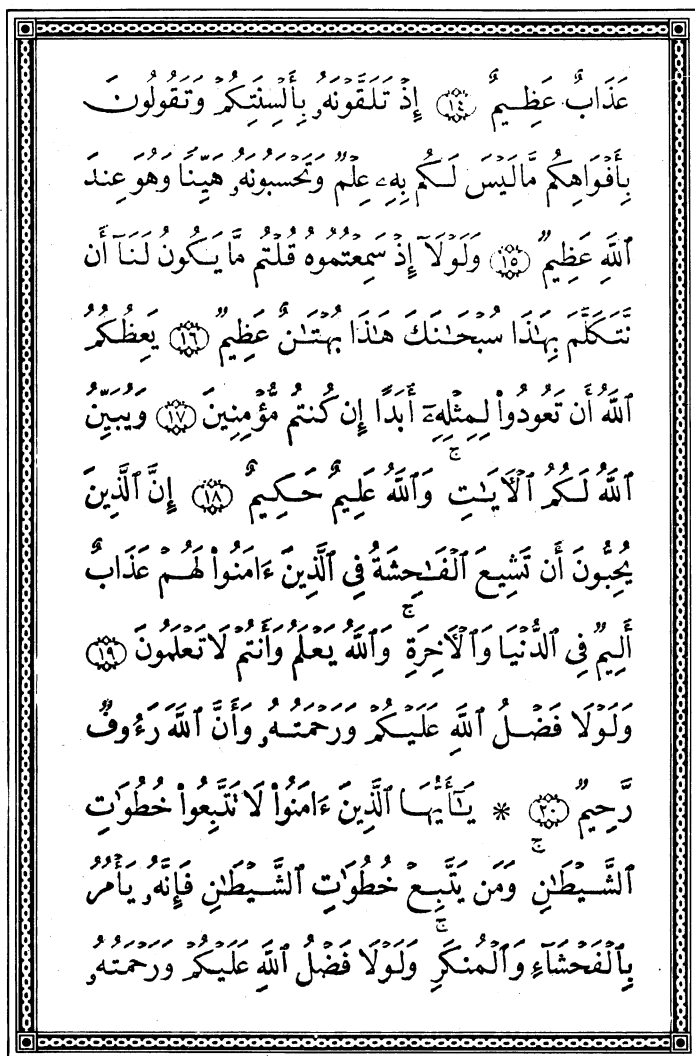 عَذَابٌ عَظِيمٌ ١٤ إِذْ تَلَقَّوْنَهُۥ بِأَلْسِنَتِكُمْ وَتَقُولُونَ
بِأَفْوَاهِكُم مَّا لَيْسَ لَكُم بِهِۦ عِلْمٌ وَتَحْسَبُونَهُۥ هَيِّنًا وَهُوَ عِندَ
ٱللَّهِ عَظِيمٌ ١٥ وَلَوْلَآ إِذْ سَمِعْتُمُوهُ قُلْتُم مَّا يَكُونُ لَنَآ أَن
نَّتَكَلَّمَ بِهَٰذَا سُبْحَٰنَكَ هَٰذَا بُهْتَٰنٌ عَظِيمٌ ١٦ يَعِظُكُمُ
ٱللَّهُ أَن تَعُودُوا۟ لِمِثْلِهِۦٓ أَبَدًا إِن كُنتُم مُّؤْمِنِينَ ١٧ وَيُبَيِّنُ
ٱللَّهُ لَكُمُ ٱلْأَيَٰتِ ۚ وَٱللَّهُ عَلِيمٌ حَكِيمٌ ١٨ إِنَّ ٱلَّذِينَ
يُحِبُّونَ أَن تَشِيعَ ٱلْفَٰحِشَةُ فِى ٱلَّذِينَ ءَامَنُوا۟ لَهُمْ عَذَابٌ
أَلِيمٌ فِى ٱلدُّنْيَا وَٱلْأَخِرَةِ ۚ وَٱللَّهُ يَعْلَمُ وَأَنتُمْ لَا تَعْلَمُونَ ١٩
وَلَوْلَا فَضْلُ ٱللَّهِ عَلَيْكُمْ وَرَحْمَتُهُۥ وَأَنَّ ٱللَّهَ رَءُوفٌ
رَّحِيمٌ ٢٠ * يَٰٓأَيُّهَا ٱلَّذِينَ ءَامَنُوا۟ لَا تَتَّبِعُوا۟ خُطُوَٰتِ
ٱلشَّيْطَٰنِ ۚ وَمَن يَتَّبِعْ خُطُوَٰتِ ٱلشَّيْطَٰنِ فَإِنَّهُۥ يَأْمُرُ
بِٱلْفَحْشَآءِ وَٱلْمُنكَرِ ۚ وَلَوْلَا فَضْلُ ٱللَّهِ عَلَيْكُمْ وَرَحْمَتُهُۥ